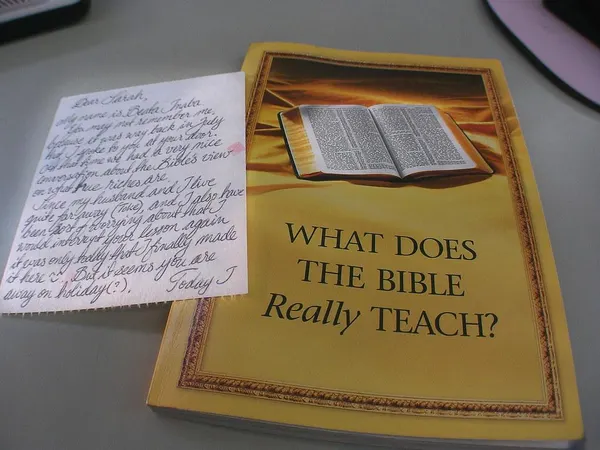 Dear Sarah,
My name is Beata Inaba
You may not remember me,
because it was way back in July
that I spoke to you at your door.
At that time we had a very nice
conversation about the Bible's view
on what true riches are.
Since my husband and I live
quite far away (Toke), and I also have
been sort of worrying about that I
would interrupt your lesson again
it was only today that I finally made
it here :). But it seems you are
away on holiday(?). Today I
WHAT DOES
THE BIBLE
Really TEACH?